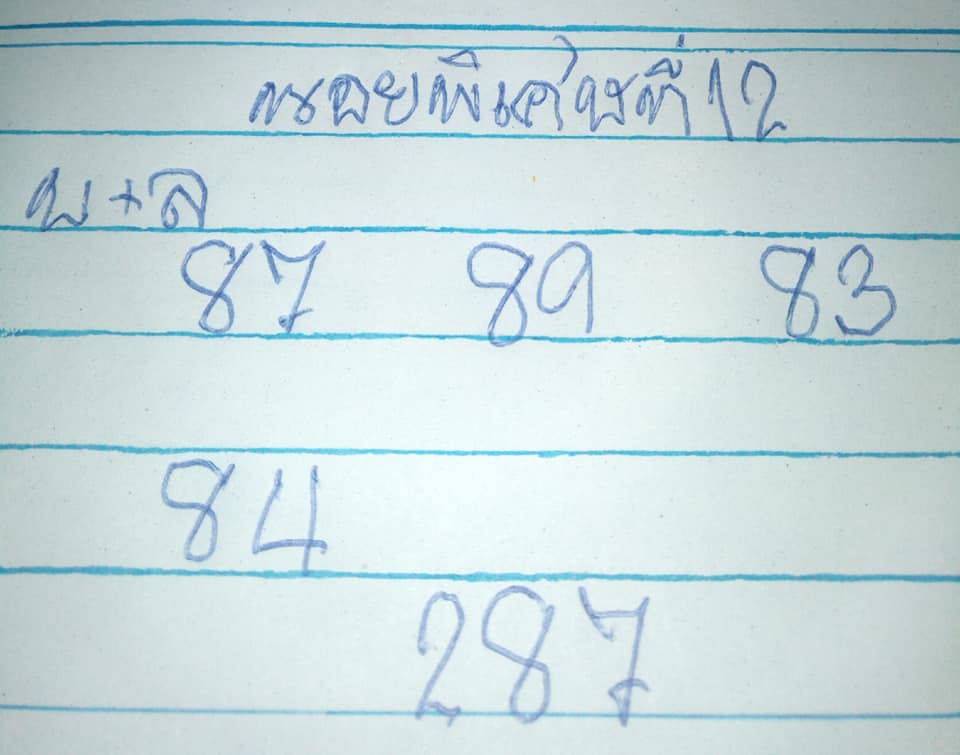 หนอยพิเศษที่ 12
บ+ล
87 89 83
84
287